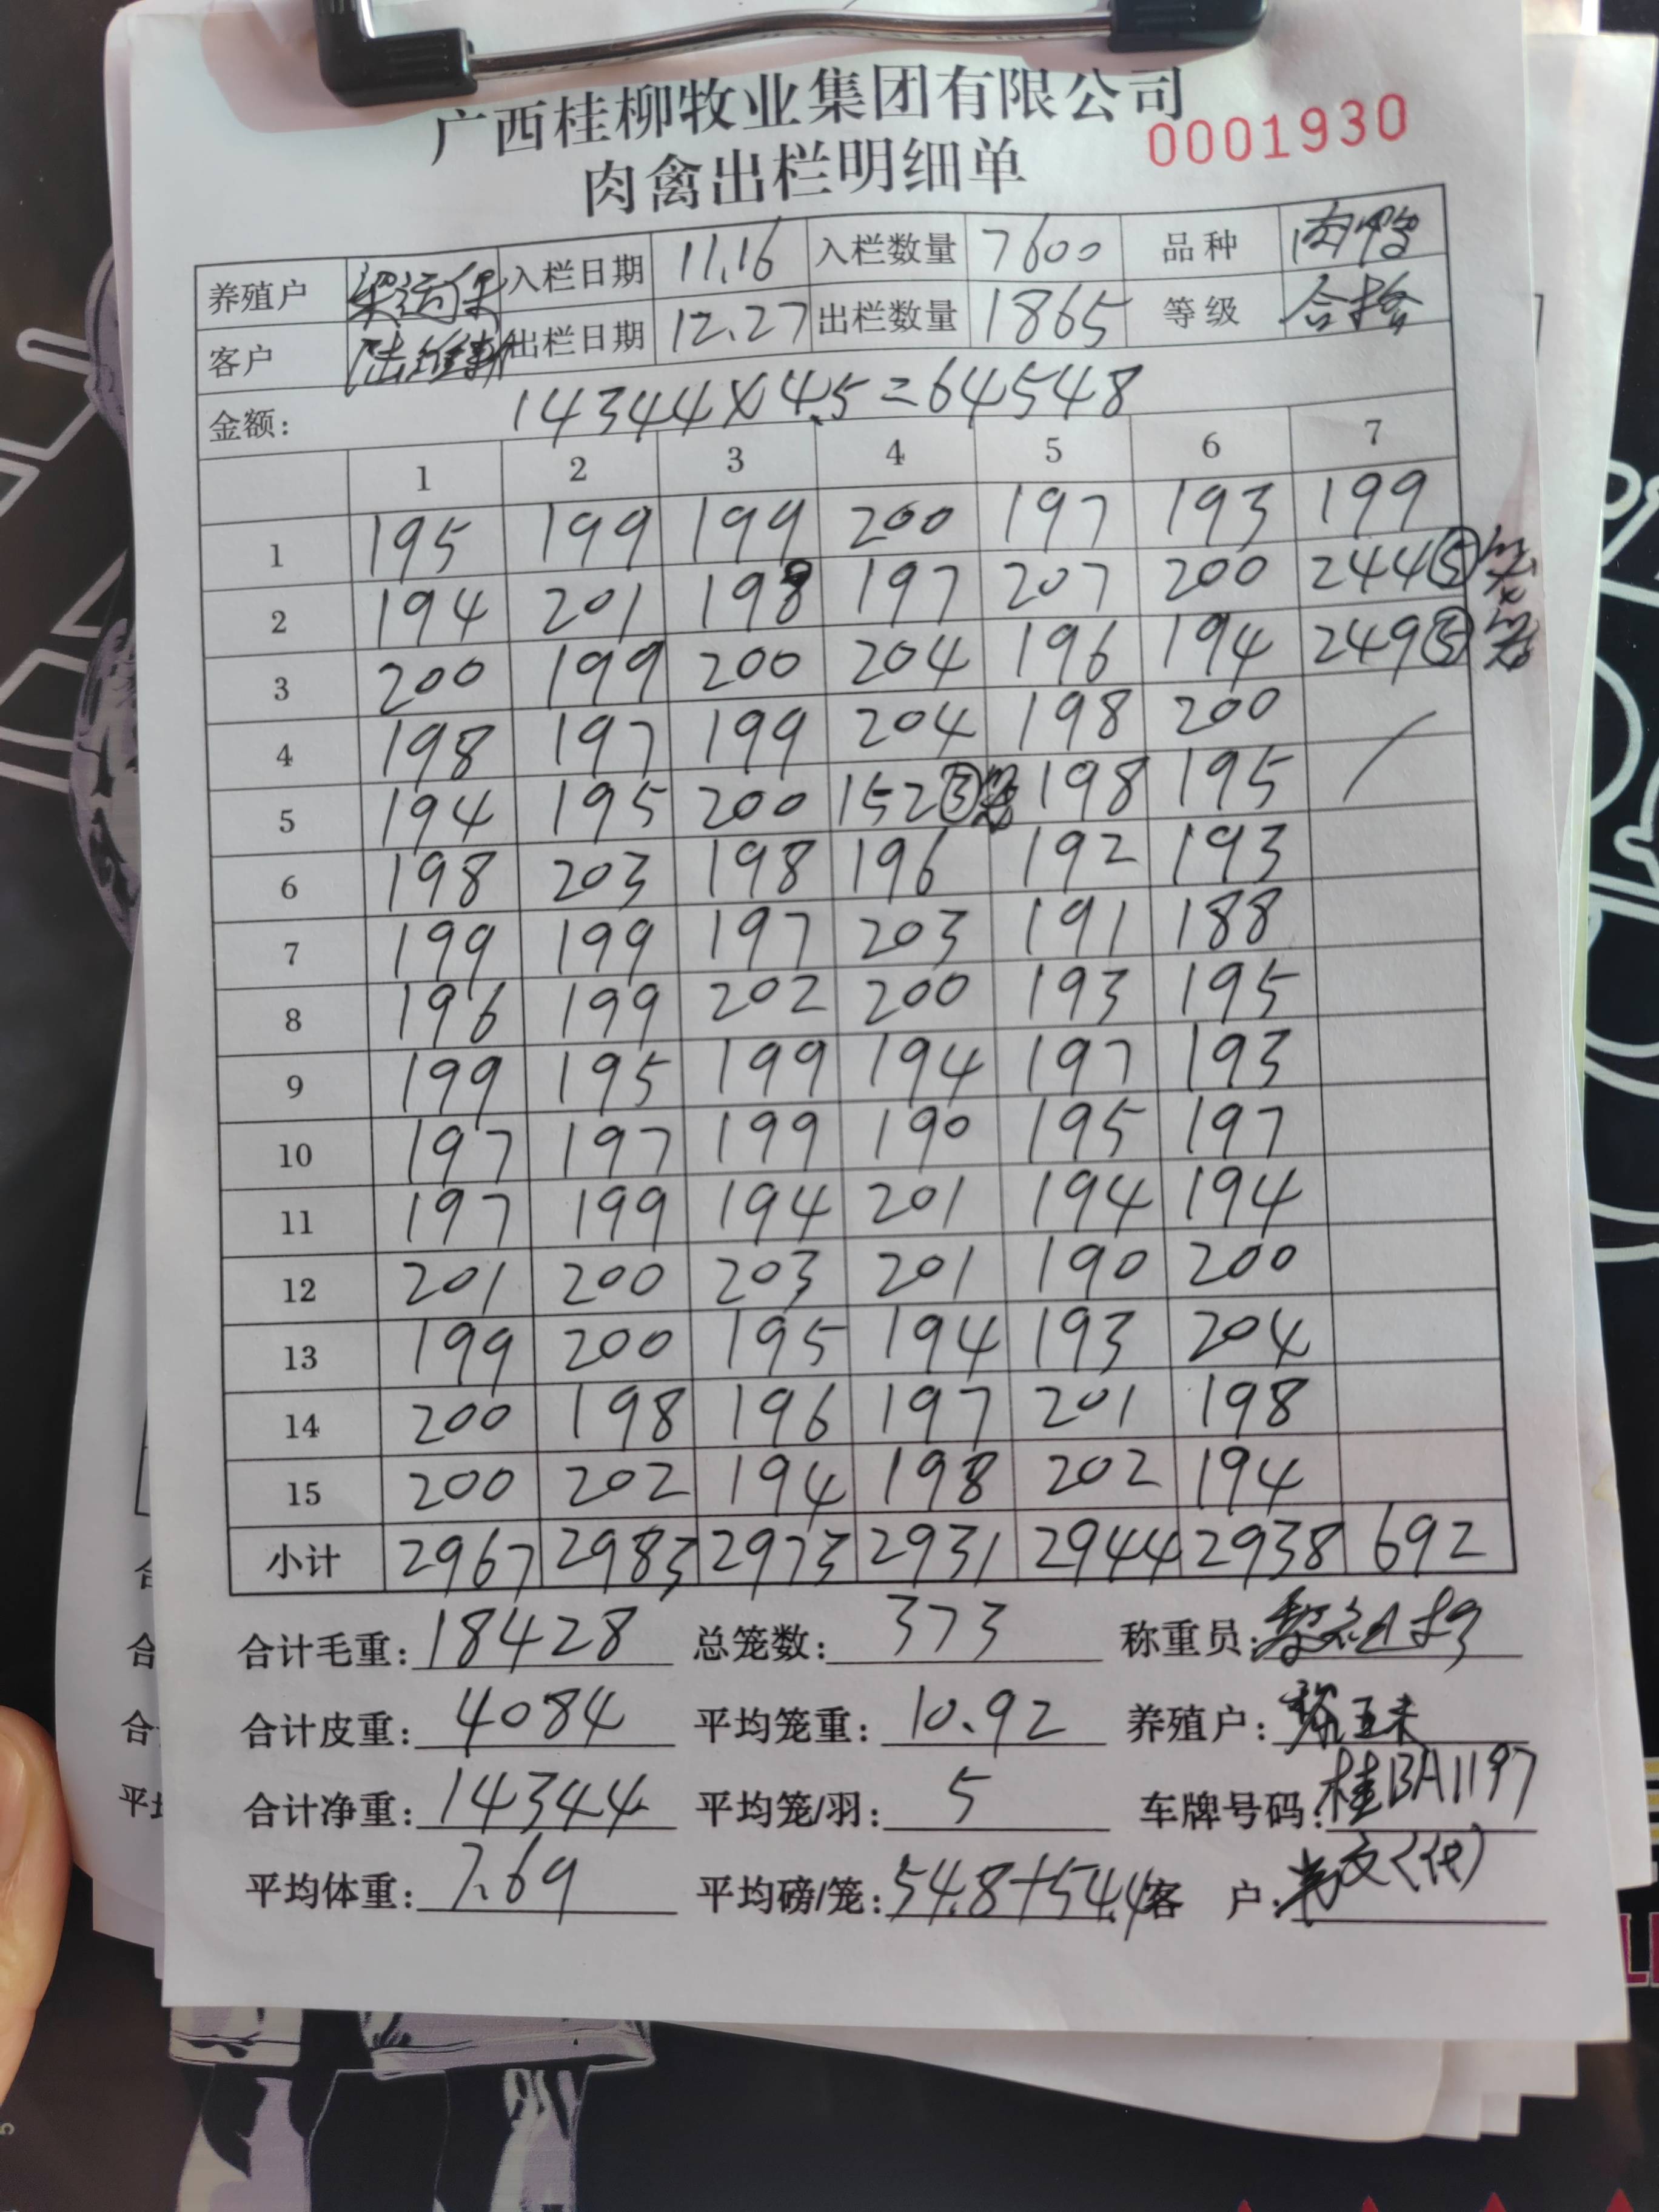 广西桂柳牧业集团有限公司
肉禽出栏明细单 0001930
养殖户 梁运保 入栏日期 11.16 入栏数量 7600 品种 肉鸭
客户 陆维新 出栏日期 12.27 出栏数量 1865 等级 合格
金额: 14344×4.5=64548
1 2 3 4 5 6 7
1 195 199 199 200 197 193 199
2 194 201 198 197 207 200 244⑤笼
3 200 199 200 204 196 194 249⑤笼
4 198 197 199 204 198 200
5 194 195 200 152③笼 198 195
6 198 203 198 196 192 193
7 199 199 197 203 191 188
8 196 199 202 200 193 195
9 199 195 199 194 197 193
10 197 197 199 190 195 197
11 197 199 194 201 194 194
12 201 200 203 201 190 200
13 199 200 195 194 193 204
14 200 198 196 197 201 198
15 200 202 194 198 202 194
小计 2967 2983 2973 2931 2944 2938 692
合计毛重: 18428 总笼数: 373 称重员:
合计皮重: 4084 平均笼重: 10.92 养殖户:
合计净重: 14344 平均笼/羽: 5 车牌号码: 桂BA1197
平均体重: 7.69 平均磅/笼: 54.8+54.4 客 户: